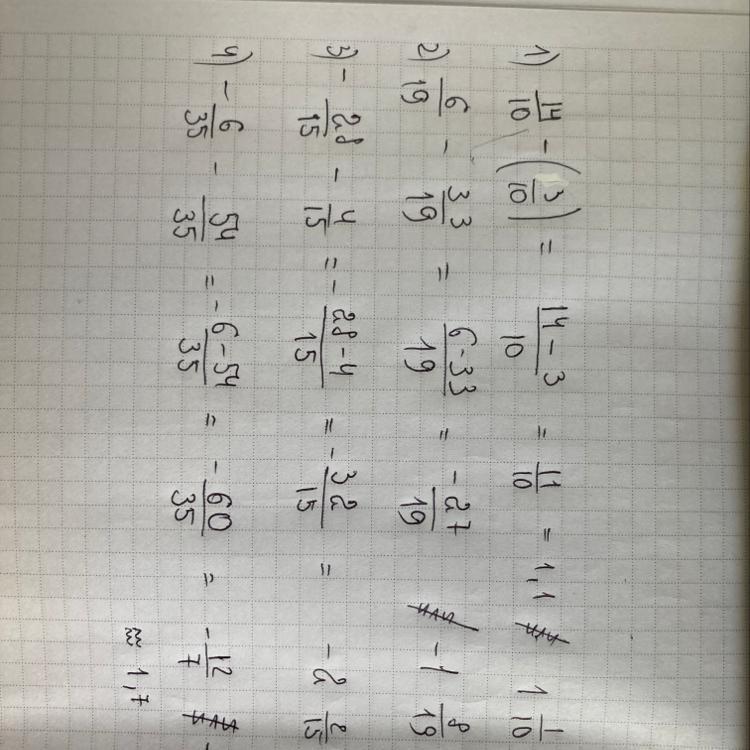 1) 14/10 - (3/10) = 14 - 3/10 = 11/10 = 1,1 1 1/10
2) 6/19 - 33/19 = 6-33/19 = -27/19 -1 8/19
3) - 28/15 - 4/15 = - 28-4/15 = - 32/15 = -2 2/15
4) - 6/35 - 54/35 = - 6-54/35 = - 60/35 = - 12/7
≈ 1,7